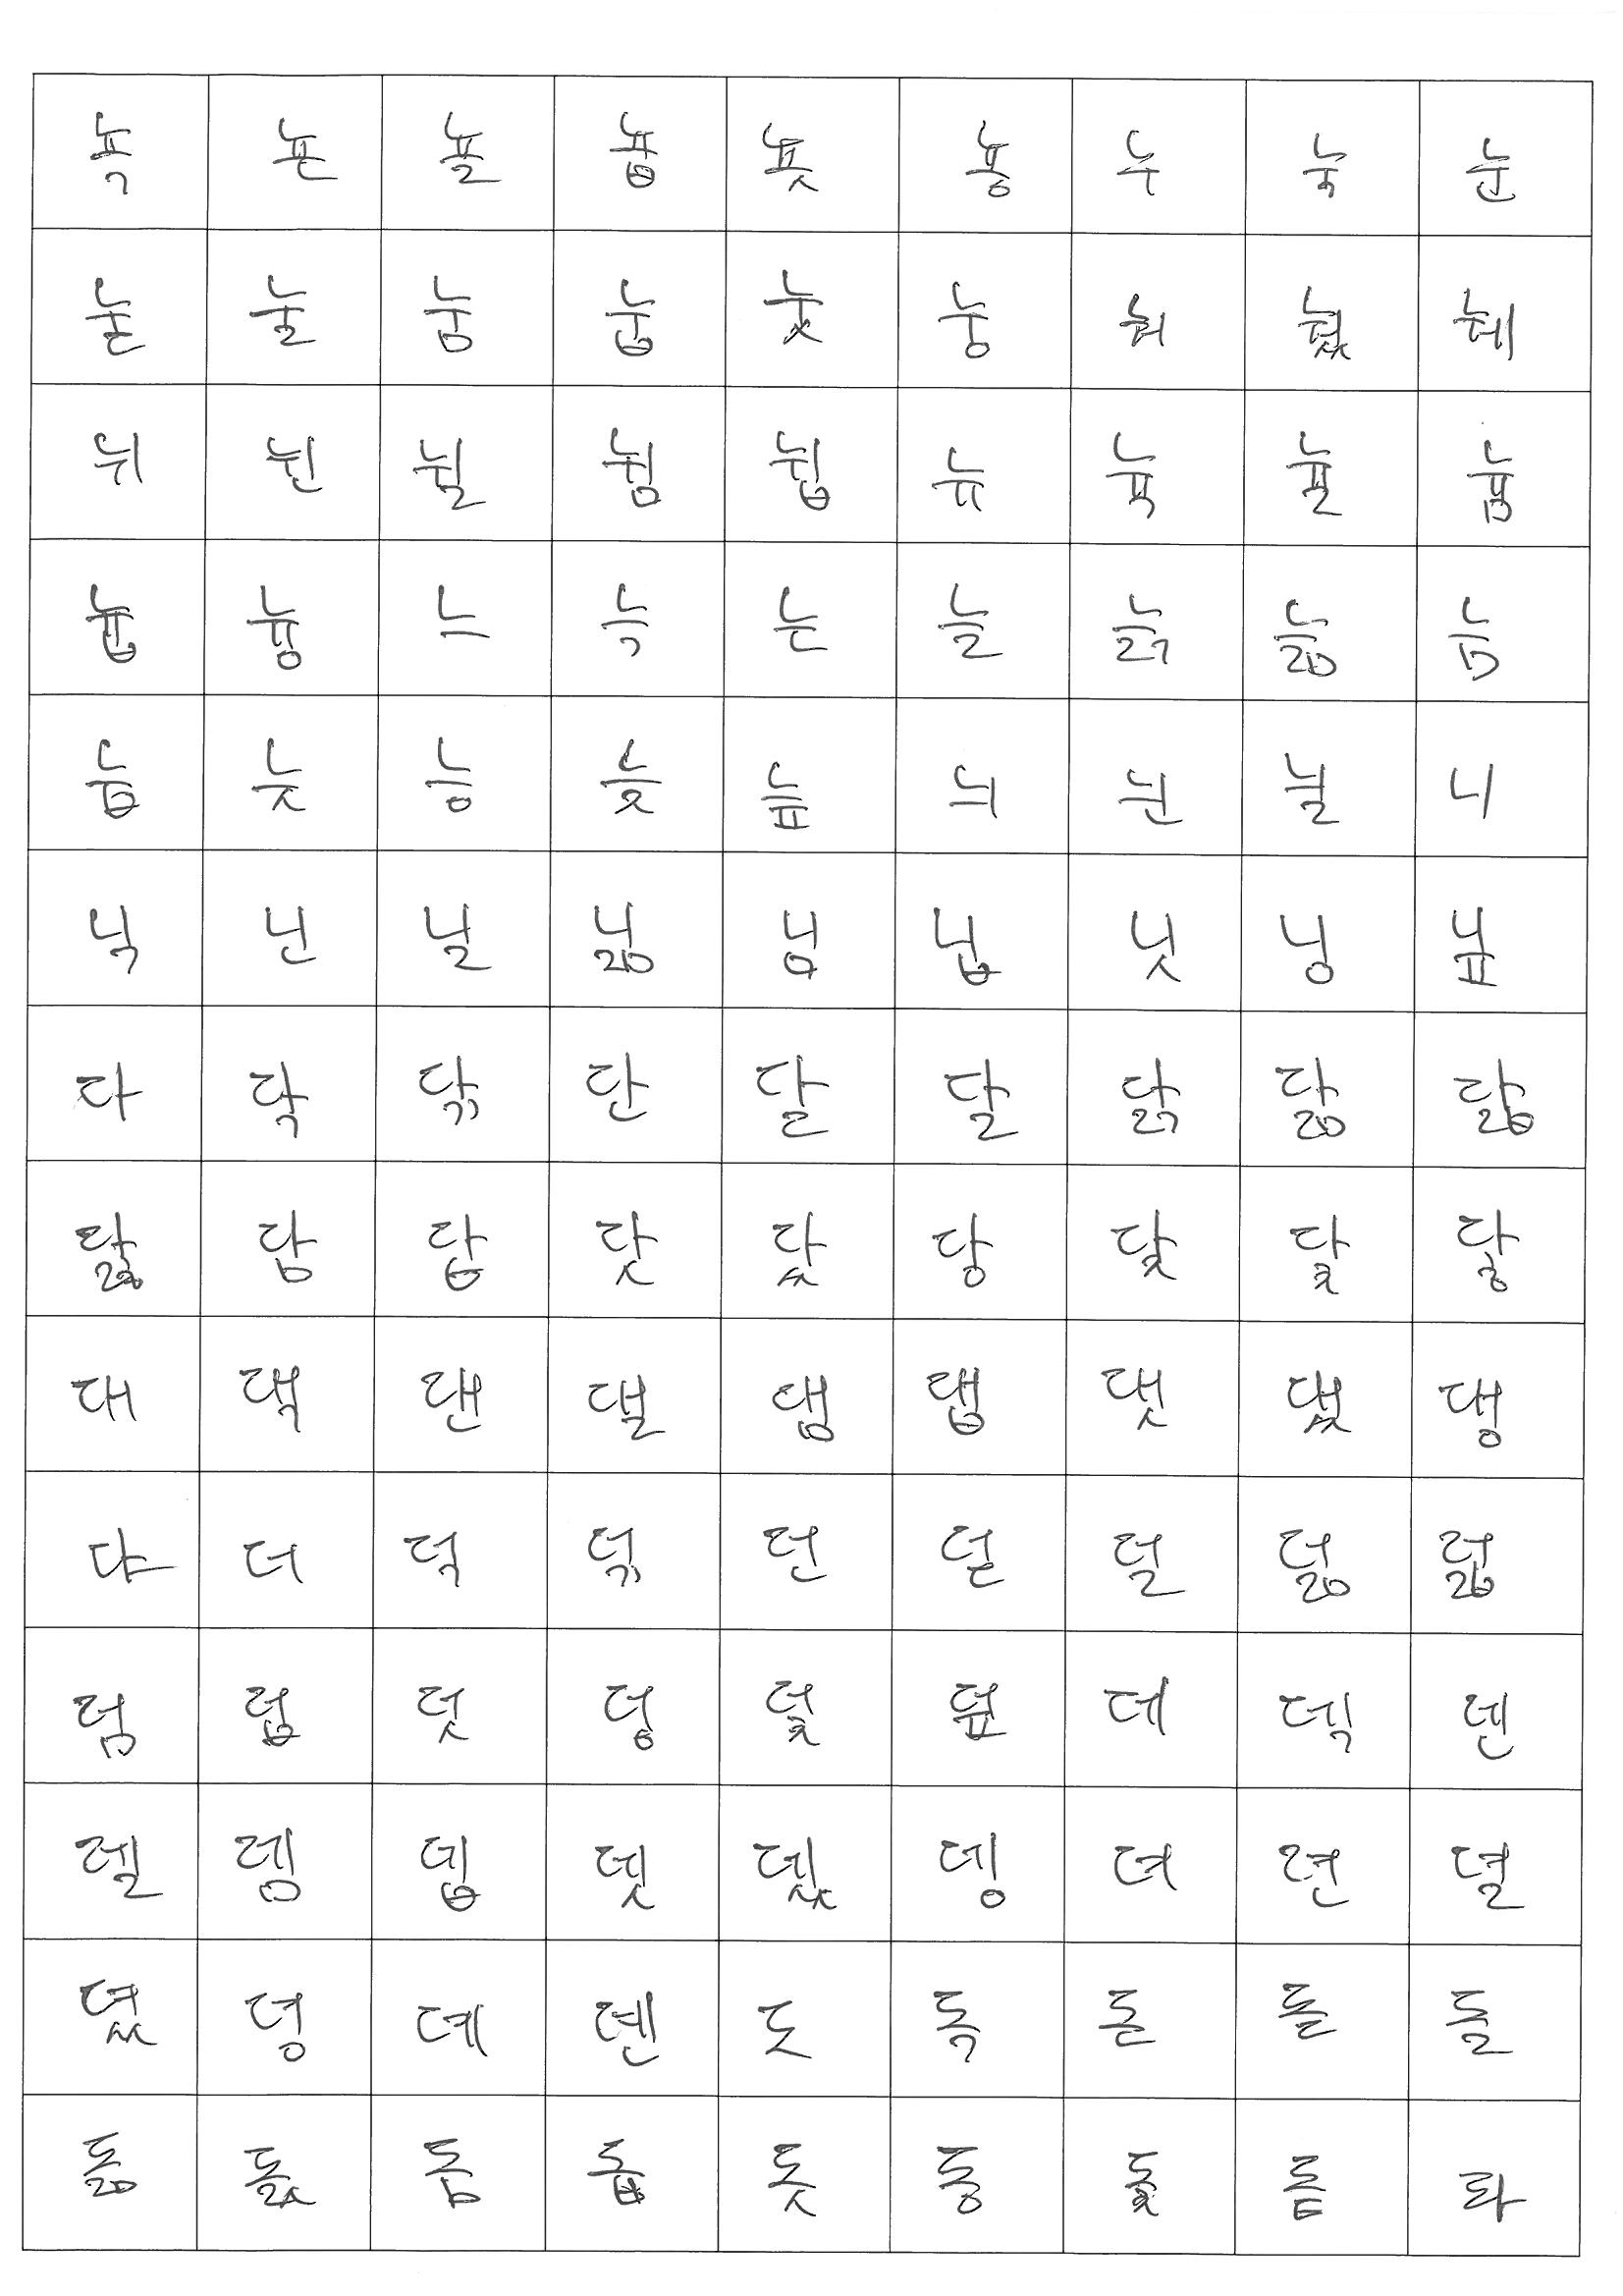 뇩 뇬 뇰 뇹 뇻 뇽 누 눅 눈
눋 눌 눔 눕 눗 눙 눠 눴 눼
뉘 뉜 뉠 뉨 뉩 뉴 뉵 뉼 늄
늅 늉 느 늑 는 늘 늙 늚 늠
늡 늣 능 늦 늪 늬 늰 늴 니
닉 닌 닐 닒 님 닙 닛 닝 닢
다 닥 닦 단 닫 달 닭 닮 닯
닳 담 답 닷 닸 당 닺 닻 닿
대 댁 댄 댈 댐 댑 댓 댔 댕
댜 더 덕 덖 던 덛 덜 덞 덟
덤 덥 덧 덩 덫 덮 데 덱 덴
델 뎀 뎁 뎃 뎄 뎅 뎌 뎐 뎔
뎠 뎡 뎨 뎬 도 독 돈 돋 돌
돎 돐 돔 돕 돗 동 돛 돝 돠